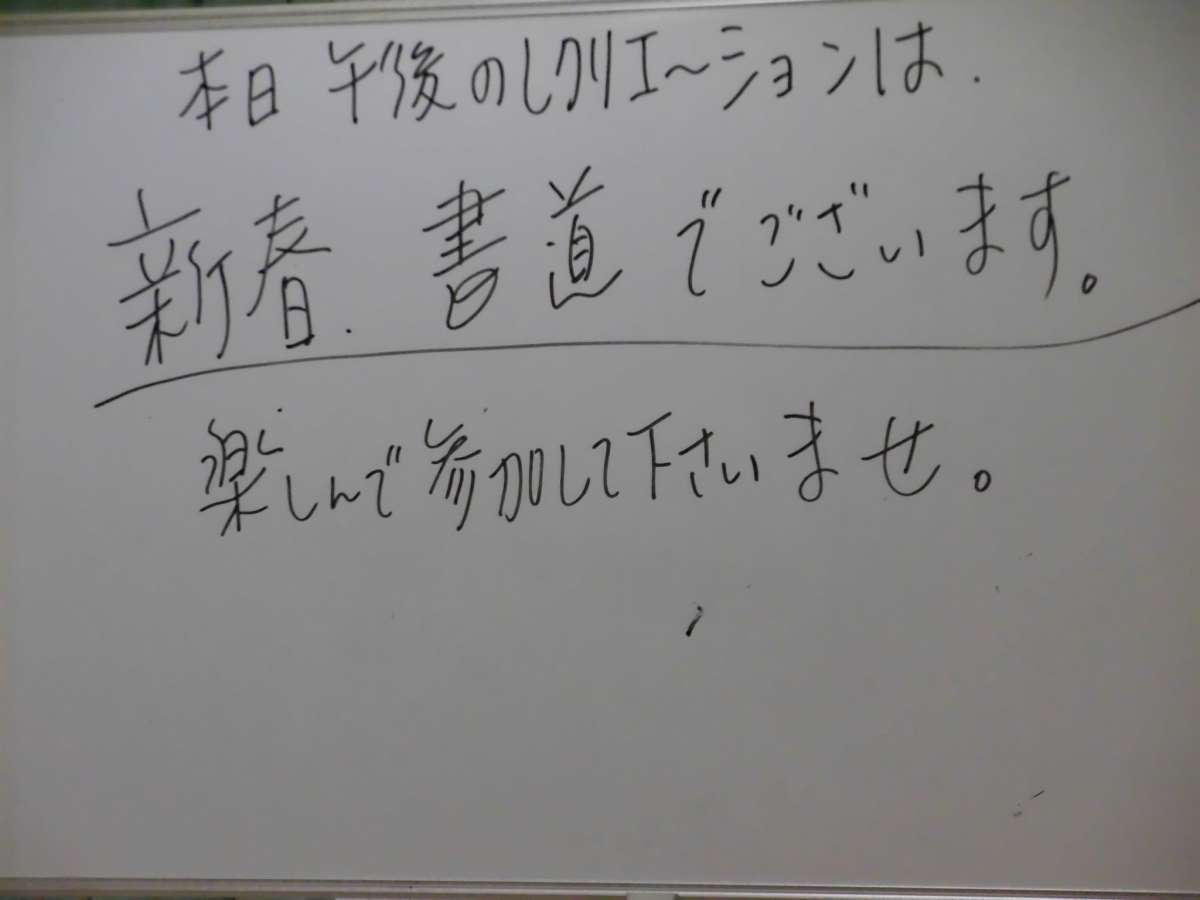 本日午後のレクリエーションは.
新春.書道でございます。
楽しんで参加して下さいませ。